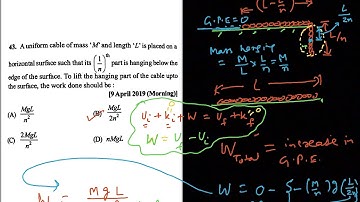 43. A uniform cable of mass 'M' and length 'L' is placed on a
horizontal surface such that its (1/n)th part is hanging below the
edge of the surface. To lift the hanging part of the cable upto
the surface, the work done should be :
[9 April 2019 (Morning)]
(A) MgL/n²
(B) MgL/2n²
(C) 2MgL/n²
(D) nMgL
G.P.E=0
(L-L/n)
L/2n
L/n
Mass hanging
= M/L × L/n = M/n
L
Ui + Ki + W = Uf + Kf
W = Uf - Ui
W Total = increase in
G.P.E.
W = 0 - {-(M/n)g(L/2n)
W = MgL